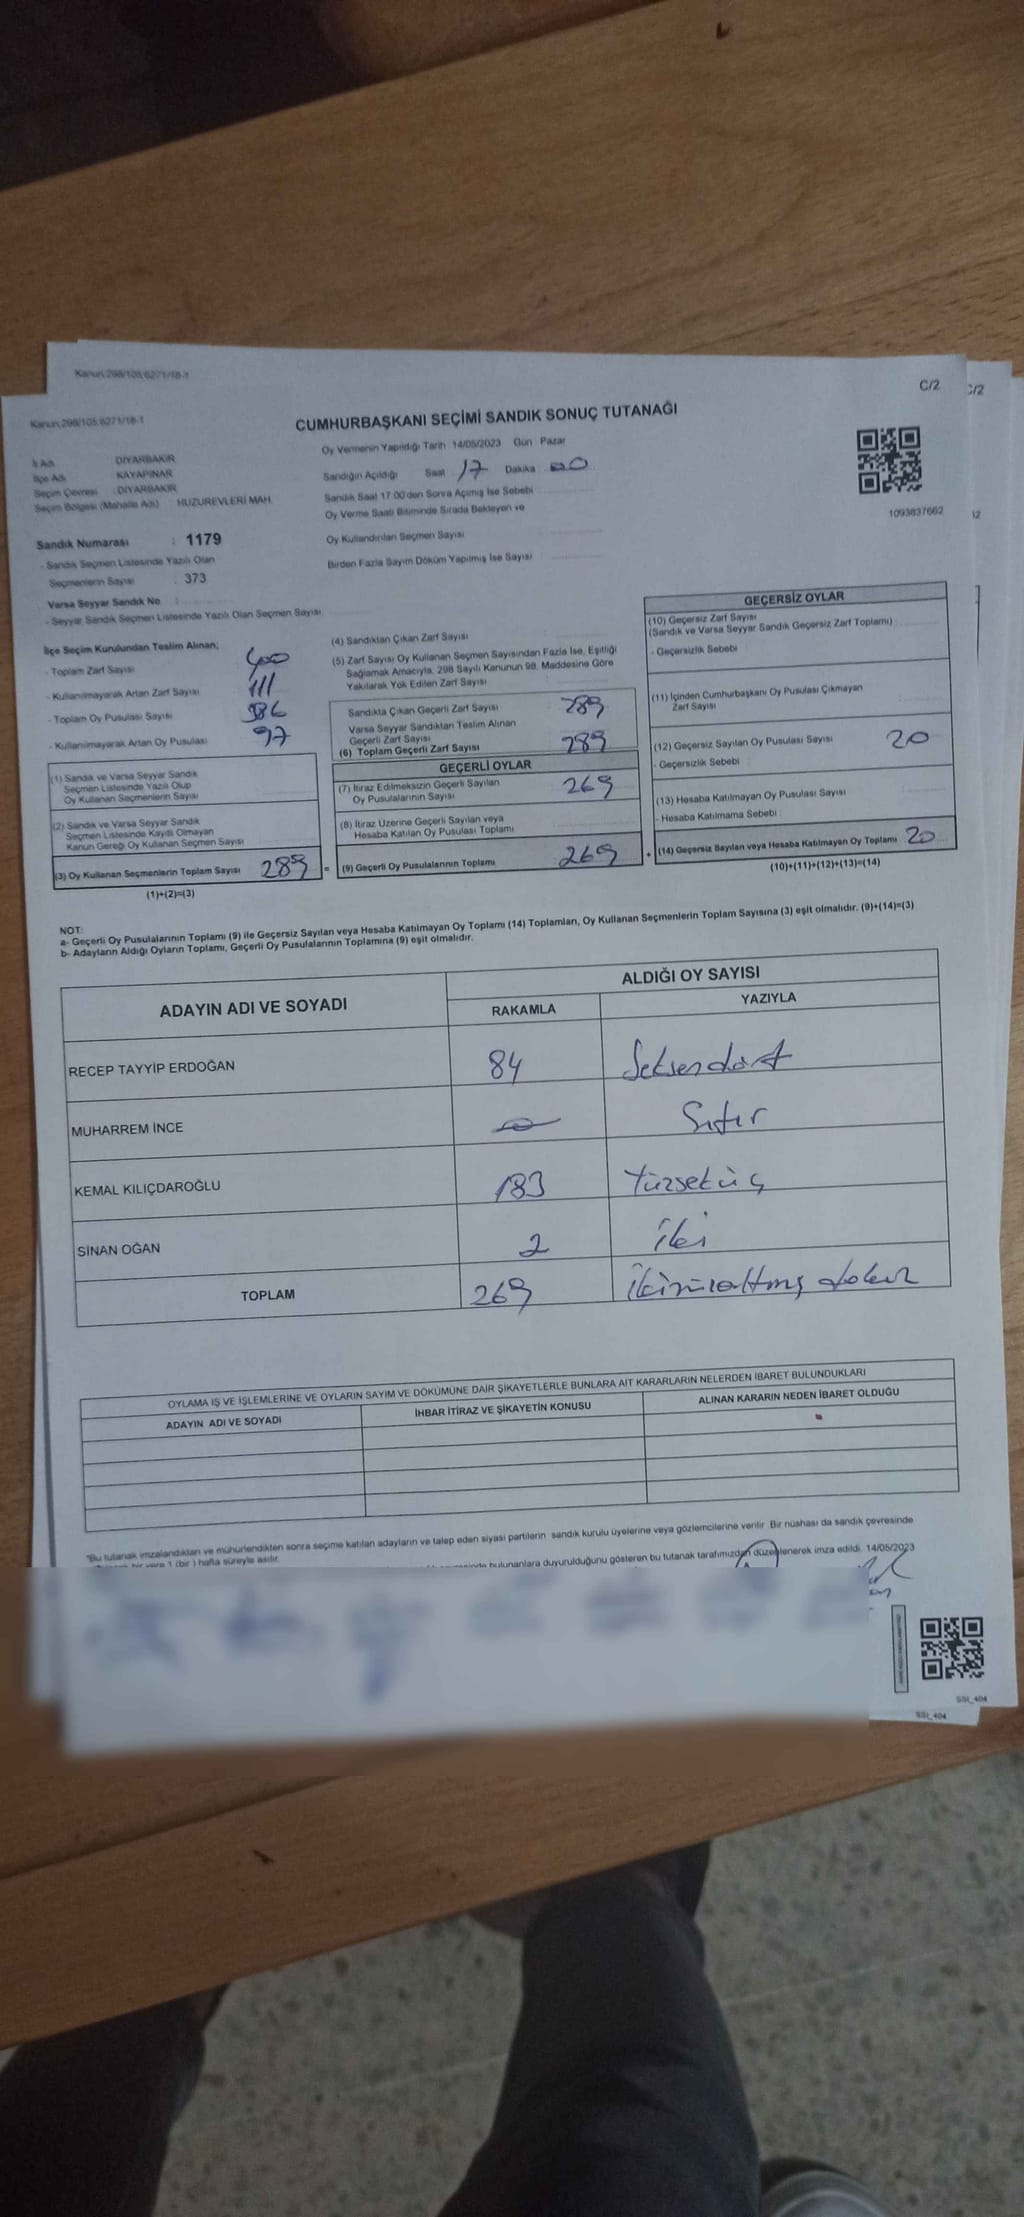 Kanun:298/105,6271/18-1
C/2
C/2
Kanun:298/105,6271/18-1
CUMHURBAŞKANI SEÇİMİ SANDIK SONUÇ TUTANAĞI
İl Adı DİYARBAKIR
İlçe Adı KAYAPINAR
Seçim Çevresi : DİYARBAKIR
Seçim Bölgesi (Mahalle Adı) HUZUREVLERİ MAH.
Sandık Numarası : 1179
- Sandık Seçmen Listesinde Yazılı Olan
Seçmenlerin Sayısı : 373
Varsa Seyyar Sandık No :
- Seyyar Sandık Seçmen Listesinde Yazılı Olan Seçmen Sayısı:
Oy Vermenin Yapıldığı Tarih 14/05/2023 Gün Pazar
Sandığın Açıldığı Saat 17 Dakika : 00
Sandık Saat 17:00'den Sonra Açılmış İse Sebebi
Oy Verme Saati Bitiminde Sırada Bekleyen ve
Oy Kullandırılan Seçmen Sayısı
Birden Fazla Sayım Döküm Yapılmış İse Sayısı
1093837662
12
İlçe Seçim Kurulundan Teslim Alınan;
- Toplam Zarf Sayısı 400
- Kullanılmayarak Artan Zarf Sayısı 111
- Toplam Oy Pusulası Sayısı 386
- Kullanılmayarak Artan Oy Pusulası 97
(1) Sandık ve Varsa Seyyar Sandık
Seçmen Listesinde Yazılı Olup
Oy Kullanan Seçmenlerin Sayısı
(2) Sandık ve Varsa Seyyar Sandık
Seçmen Listesinde Kaydı Olmayan
Kanun Gereği Oy Kullanan Seçmen Sayısı
(3) Oy Kullanan Seçmenlerin Toplam Sayısı 289 =
(1)+(2)=(3)
(4) Sandıktan Çıkan Zarf Sayısı
(5) Zarf Sayısı Oy Kullanan Seçmen Sayısından Fazla İse, Eşitliği
Sağlamak Amacıyla, 298 Sayılı Kanunun 98. Maddesine Göre
Yakılarak Yok Edilen Zarf Sayısı
Sandıkta Çıkan Geçerli Zarf Sayısı 289
Varsa Seyyar Sandıktan Teslim Alınan
Geçerli Zarf Sayısı
(6) Toplam Geçerli Zarf Sayısı 289
GEÇERLİ OYLAR
(7) İtiraz Edilmeksizin Geçerli Sayılan
Oy Pusulalarının Sayısı 269
(8) İtiraz Üzerine Geçerli Sayılan veya
Hesaba Katılan Oy Pusulası Toplamı
(9) Geçerli Oy Pusulalarının Toplamı 269 +
GEÇERSİZ OYLAR
(10) Geçersiz Zarf Sayısı
(Sandık ve Varsa Seyyar Sandık Geçersiz Zarf Toplamı)
- Geçersizlik Sebebi
(11) İçinden Cumhurbaşkanı Oy Pusulası Çıkmayan
Zarf Sayısı
(12) Geçersiz Sayılan Oy Pusulası Sayısı 20
- Geçersizlik Sebebi
(13) Hesaba Katılmayan Oy Pusulası Sayısı
- Hesaba Katılmama Sebebi :
(14) Geçersiz Sayılan veya Hesaba Katılmayan Oy Toplamı 20
(10)+(11)+(12)+(13)=(14)
NOT:
a- Geçerli Oy Pusulalarının Toplamı (9) ile Geçersiz Sayılan veya Hesaba Katılmayan Oy Toplamı (14) Toplamları, Oy Kullanan Seçmenlerin Toplam Sayısına (3) eşit olmalıdır. (9)+(14)=(3)
b- Adayların Aldığı Oyların Toplamı, Geçerli Oy Pusulalarının Toplamına (9) eşit olmalıdır.
ADAYIN ADI VE SOYADI
ALDIĞI OY SAYISI
RAKAMLA YAZIYLA
RECEP TAYYİP ERDOĞAN 84 Seksendört
MUHARREM İNCE 0 Sıfır
KEMAL KILIÇDAROĞLU 183 Yüzseküç
SİNAN OĞAN 2 iki
TOPLAM 269 ikiyüzaltmış dokuz
OYLAMA İŞ VE İŞLEMLERİNE VE OYLARIN SAYIM VE DÖKÜMÜNE DAİR ŞİKAYETLERLE BUNLARA AİT KARARLARIN NELERDEN İBARET BULUNDUKLARI
ADAYIN ADI VE SOYADI İHBAR İTİRAZ VE ŞİKAYETİN KONUSU ALINAN KARARIN NEDEN İBARET OLDUĞU
*Bu tutanak imzalandıktan ve mühürlendikten sonra seçime katılan adayların ve talep eden siyasi partilerin sandık kurulu üyelerine veya gözlemcilerine verilir. Bir nüshası da sandık çevresinde
bir yere 1 (bir) hafta süreyle asılır.
bulunanlara duyurulduğunu gösteren bu tutanak tarafımızdan düzenlenerek imza edildi. 14/05/2023
SSI_404
SSI_404